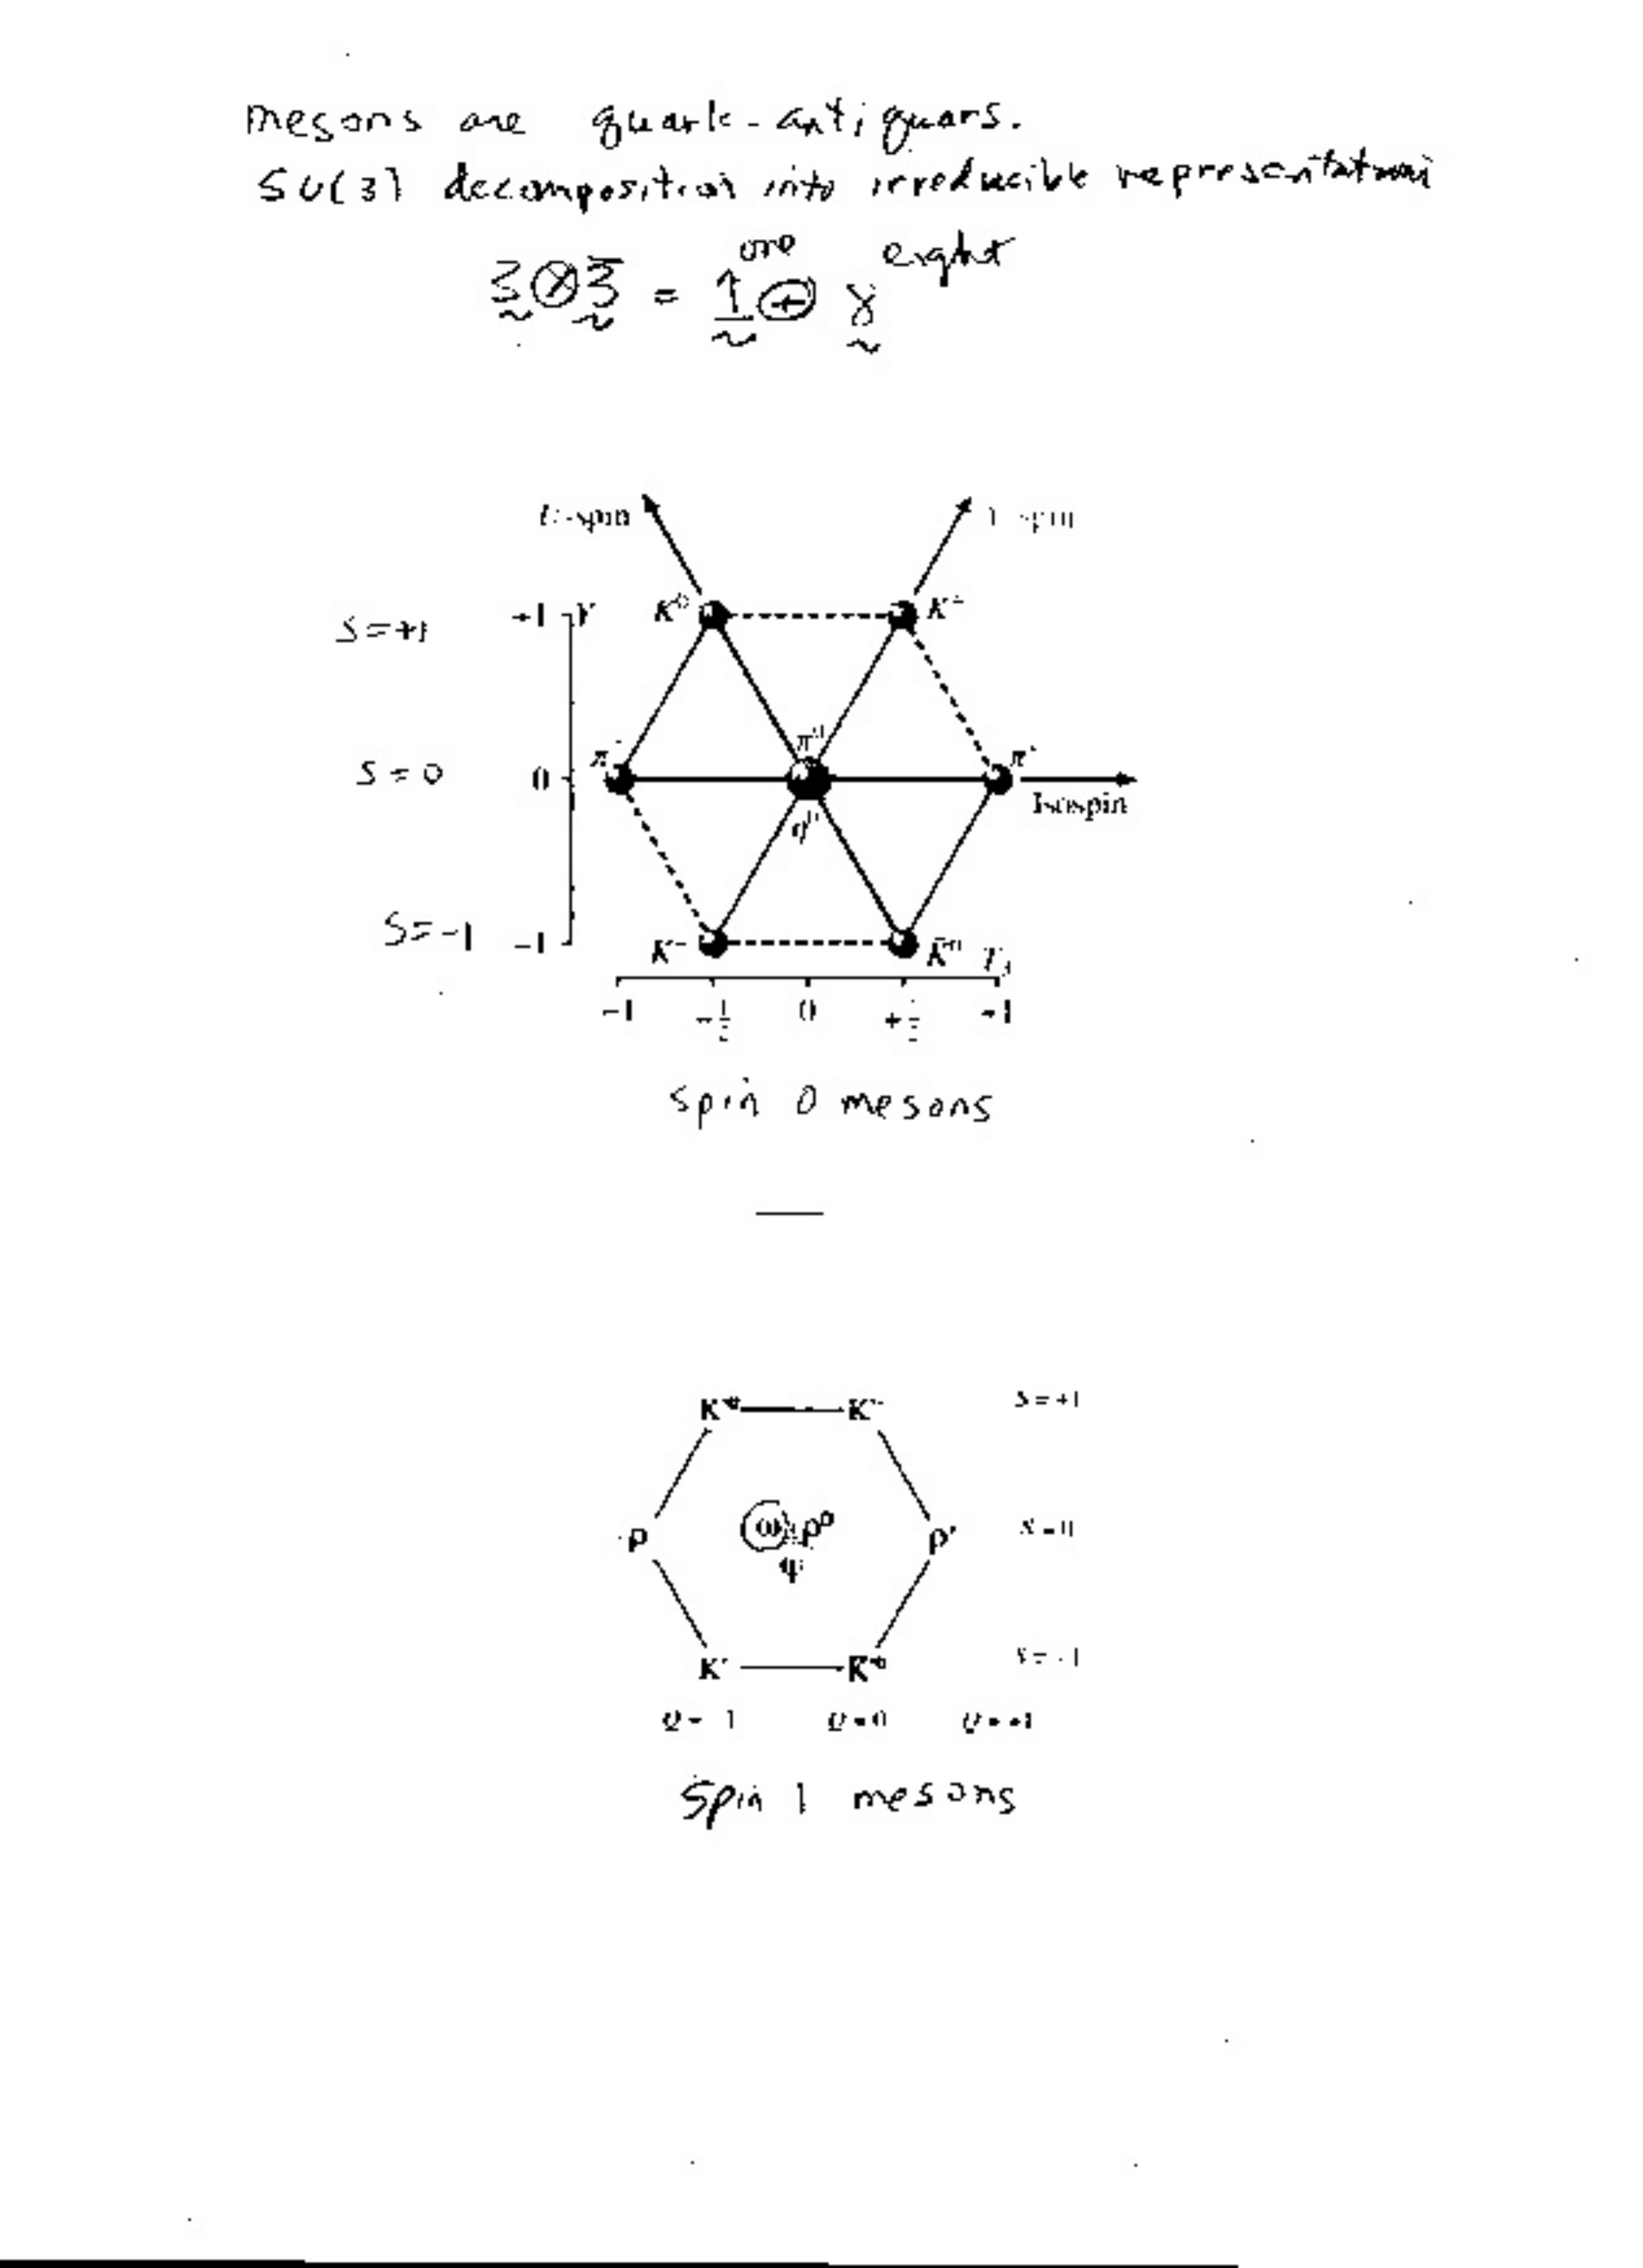 mesons are quark-antiquars.
SU(3) decomposition into irreducible representation
one eight
3 ⊗ 3̅ = 1 ⊕ 8
-spin -spin
S=+1 +1 Y K⁰ K⁺
π⁰
S=0 0 π⁻ π⁺
Isospin
η⁰
S=-1 -1 K⁻ K̅⁰ T₃
-1 -½ 0 +½ +1
spin 0 mesons
K*⁰ K* S=+1
ω ρ⁰
ρ ρ⁺ S=0
φ
K* K̅*⁰ S=-1
Q=-1 Q=0 Q=+1
Spin 1 mesons